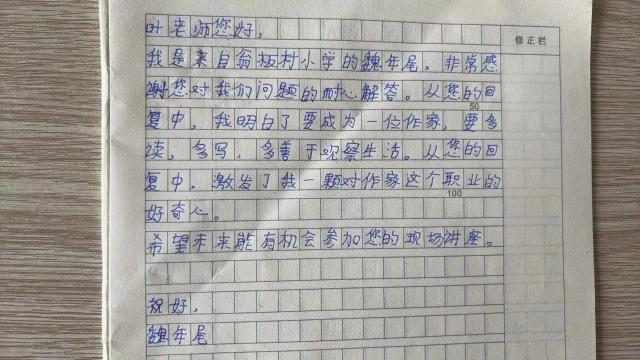 叶老师您好，
修正栏
我是来自翁板村小学的魏年尾。非常感
谢您对我们问题的耐心解答。从您的回
50
复中，我明白了要成为一位作家，要多
读，多写，多善于观察生活。从您的回
复中。激发了我一颗对作家这个职业的
100
好奇心。
希望未来能有机会参加您的现场讲座。
祝好，
魏年尾